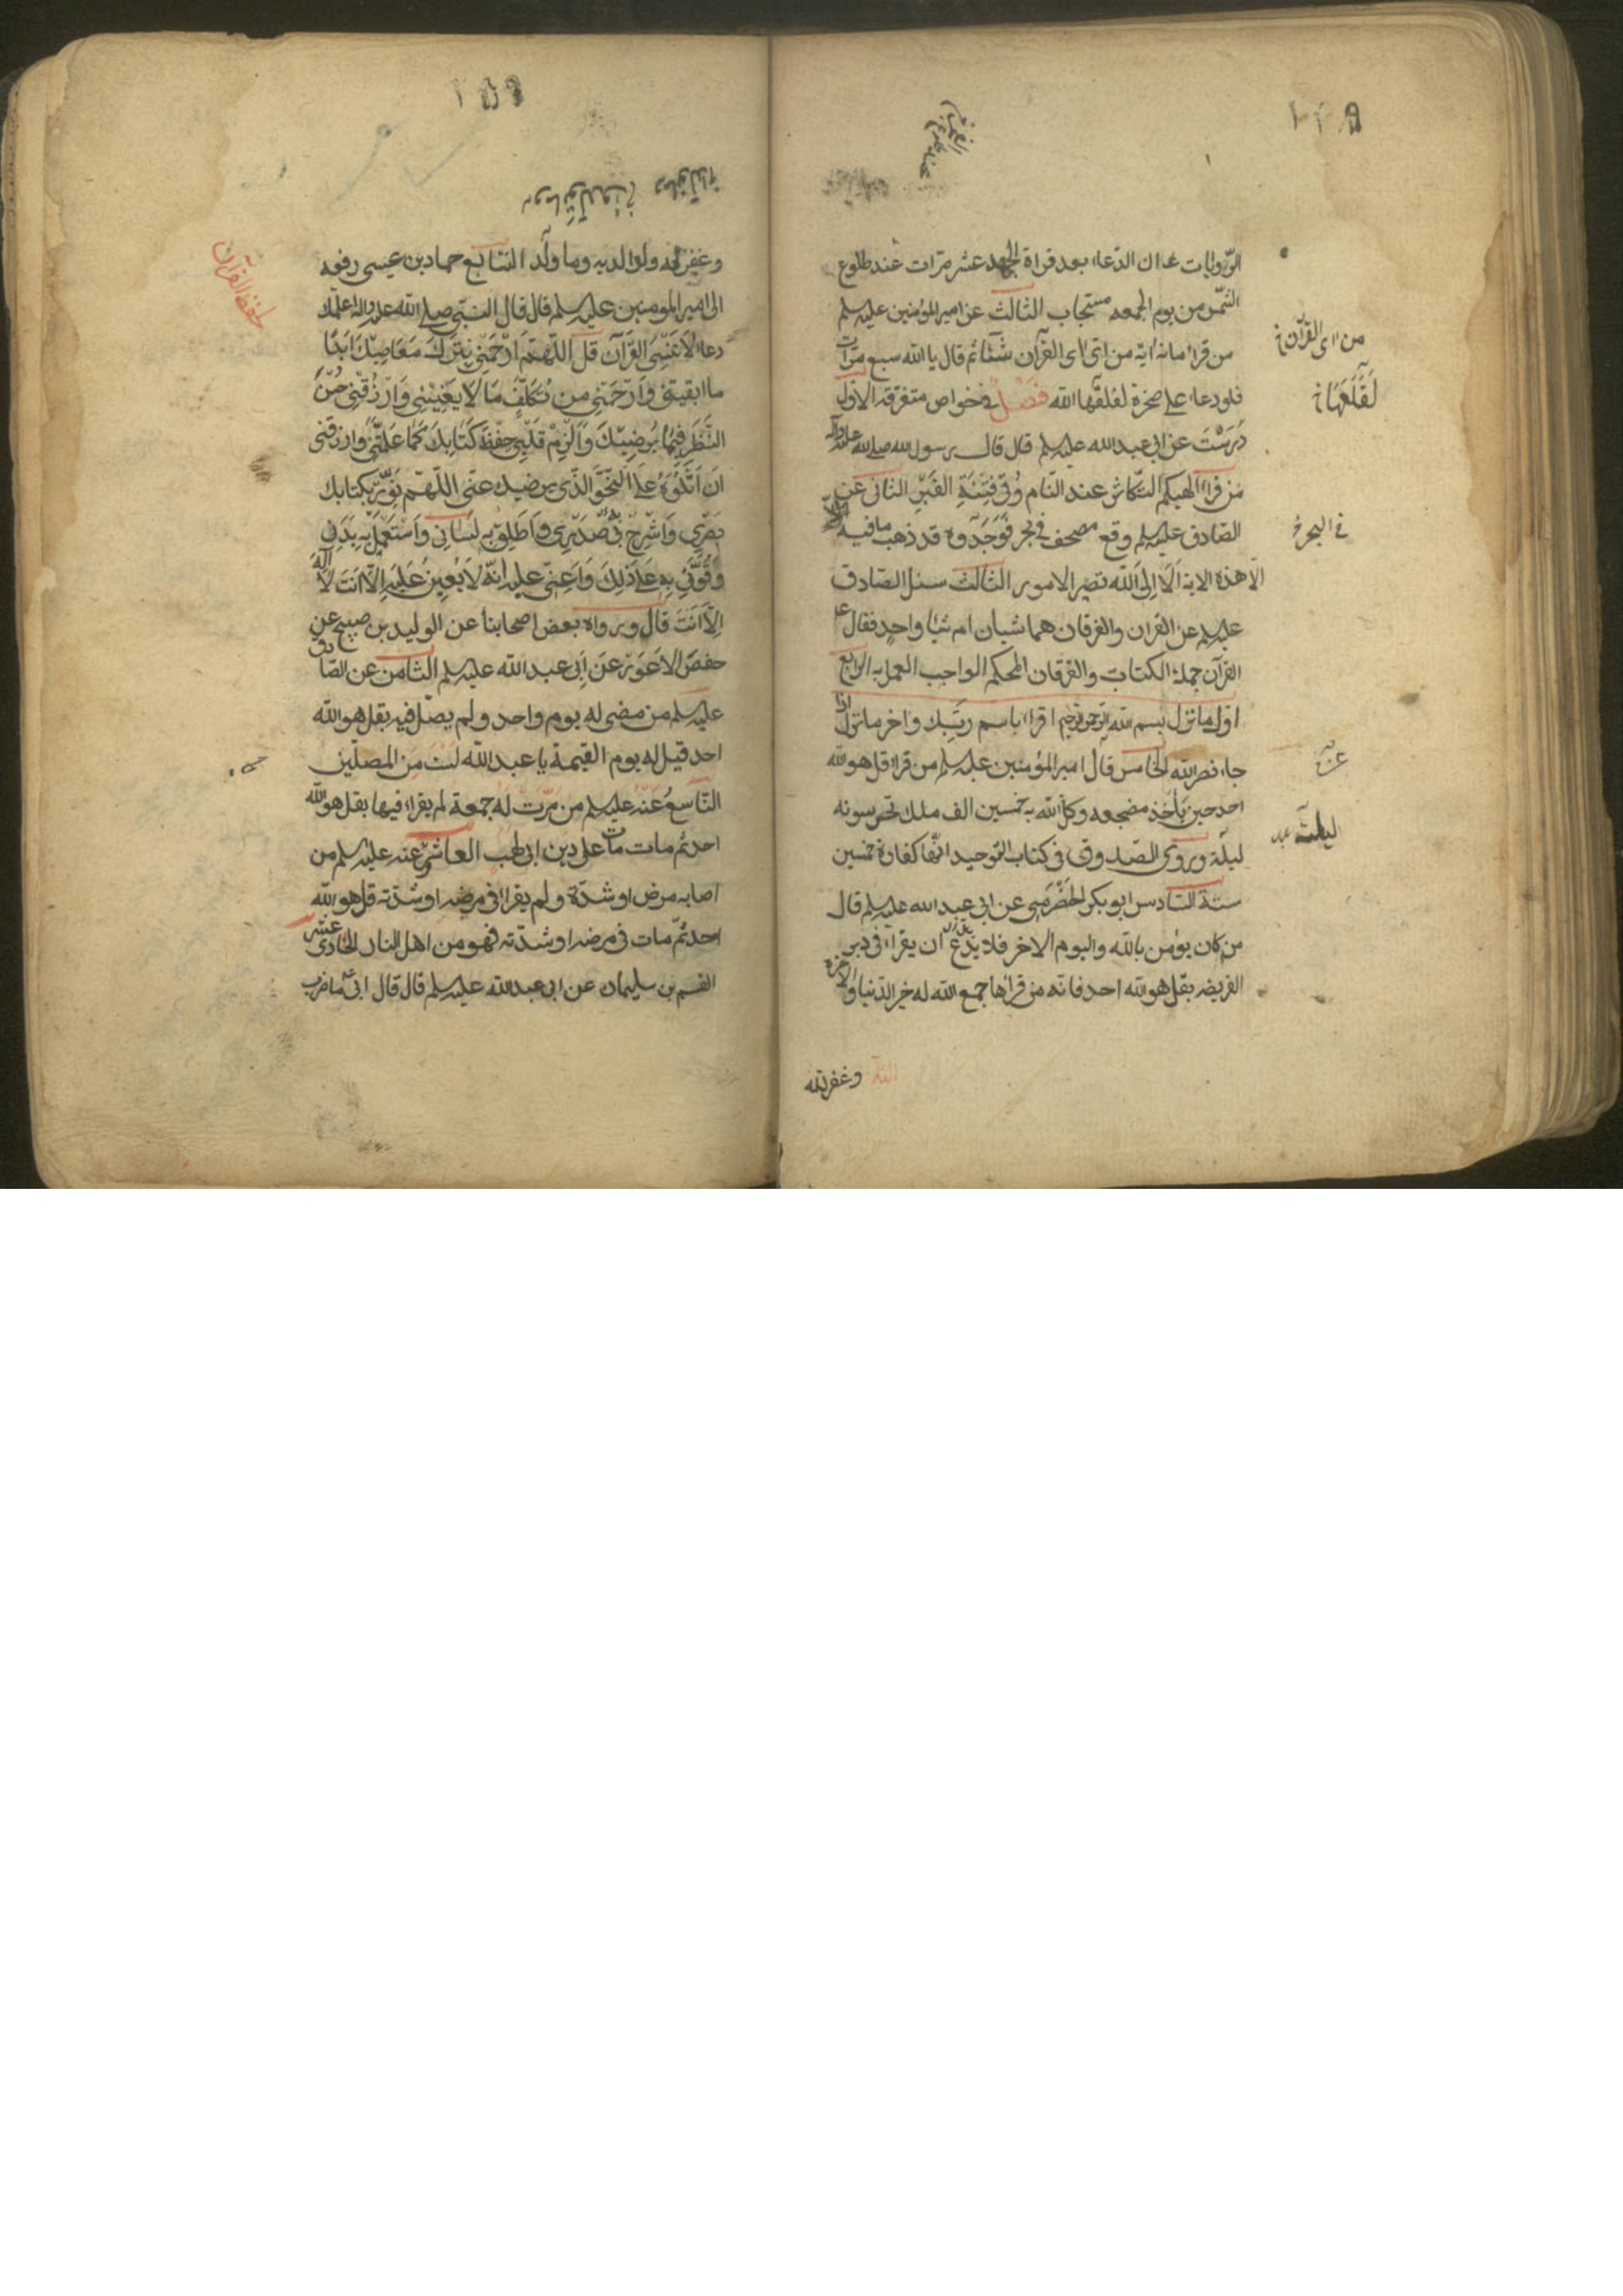 الروايات ان الدعاء بعد قراءة الجحد عشر مرّات عند طلوع
الشمس من يوم الجمعه مستجاب الثالث عن امير المؤمنين عليه السلم
من قرا مائة اية من اىّ اى القرآن شاء ثم قال يا الله سبع مرّات
فلو دعا على صخرة لفلقها الله فصل فى خواص متفرقة الاول
دُرُسْتَ عن ابى عبد الله عليه السلم قال قال رسول الله صلى الله عليه وآله
من قرأ الهيكم التكاثر عند النّوم وُقى فِتنَةِ القَبْرِ الثانى عن
الصّادق عليه السلم وقع مصحف فى بحر فَوَجَدُوهُ قد ذهب ما فيه
الّا هذه الاية اَلَا اِلَى اللّه تصير الامور الثالث سئل الصّادق
عليه السلم عن القران والفرقان هما شيئان ام شئ واحد فقال ع
القرآن جملة الكتاب والفرقان المحكم الواجب العمل به الرابع
اوّل ما نزل بسم الله الرحمن الرحيم اقرا باسم ربّك واخر ما نزل اذا
جاء نصر الله الخامس قال امير المؤمنين عليه السلم من قرا قل هو الله
احد حين يأخذ مضجعه وكلّ الله به خمسين الف ملك يحرسونه
ليلة وروى الصّدوق فى كتاب التوحيد انّها كفارة خمسين
سنة السّادس ابو بكر الحَضْرَمِى عن ابى عبد الله عليه السلم قال
من كان يؤمن بالله واليوم الاخر فلا يَدَعْ ان يقراء فى دبر
الفريضه بقل هو الله احد فانه من قراها جمع الله له خير الدّنيا والآخرة
وغفر الله
من اى القرآن خ
لَقَلَعَهَا خ
فى البحر خ
وغفر له ولوالديه وما ولدا السّابع حماد بن عيسى رفعه
الى امير المومنين عليه السلم قال قال النبى صلى الله عليه واله اعلمك
دعاء لا تَنْسَى القرآن قل اللّهمّ ارْحَمْنِى بِتَرْكِ مَعَاصِيكَ ابَدًا
ما ابقيتنى وَارْحَمْنِى من تكلّف مَا لا يَعْنِينِى وَارْزُقْنِى حُسْنَ
النَّظَرِ فِيمَا يُرْضِيكَ وَاَلْزِمْ قَلْبِى حِفْظَ كِتَابِكَ كَمَا عَلَّمْتَنِى وارزقنى
اَنْ اَتْلُوَهُ عَلَى النَّحْوِ الّذى يرضيك عنّى اللّهمّ نَوِّرْ بكتابك
بَصَرِى وَاشْرَحْ بِه صَدْرِى وَاَطْلِقْ بِه لِسَانِى وَاسْتَعْمِلْ بِه بَدَنِى
وَقَوِّنِى بِهِ عَلَى ذَلِكَ وَاَعِنّى عليه اِنّهُ لَا يُعِينُ عَلَيْهِ اِلّا اَنْتَ لَا اله
اِلّا اَنْتَ قال ورواه بعض اصحابنا عن الوليد بن صبيح عن
حفص الاعور عن ابى عبد الله عليه السلم الثامن عن الصّادق
عليه السلم من مضى له يوم واحد ولم يصلّ فيه بقل هو الله
احد قيل له يوم القيمة يا عبد الله لست من المصلّين
التّاسع عنه عليه السلم من مرّت له جمعة لم يقراء فيها بقل هو الله
احد ثم مات مات على دين ابى لهب العاشر عنه عليه السلم من
اصابه مرض او شدّة ولم يقرا فى مرضه او شدّته قل هو الله
احد ثمّ مات فى مرضه او شدّته فهو من اهل النار الحادى عشر
القسم بن سليمان عن ابى عبد الله عليه السلم قال قال ابى ع ما ضرب
لحفظ القرآن